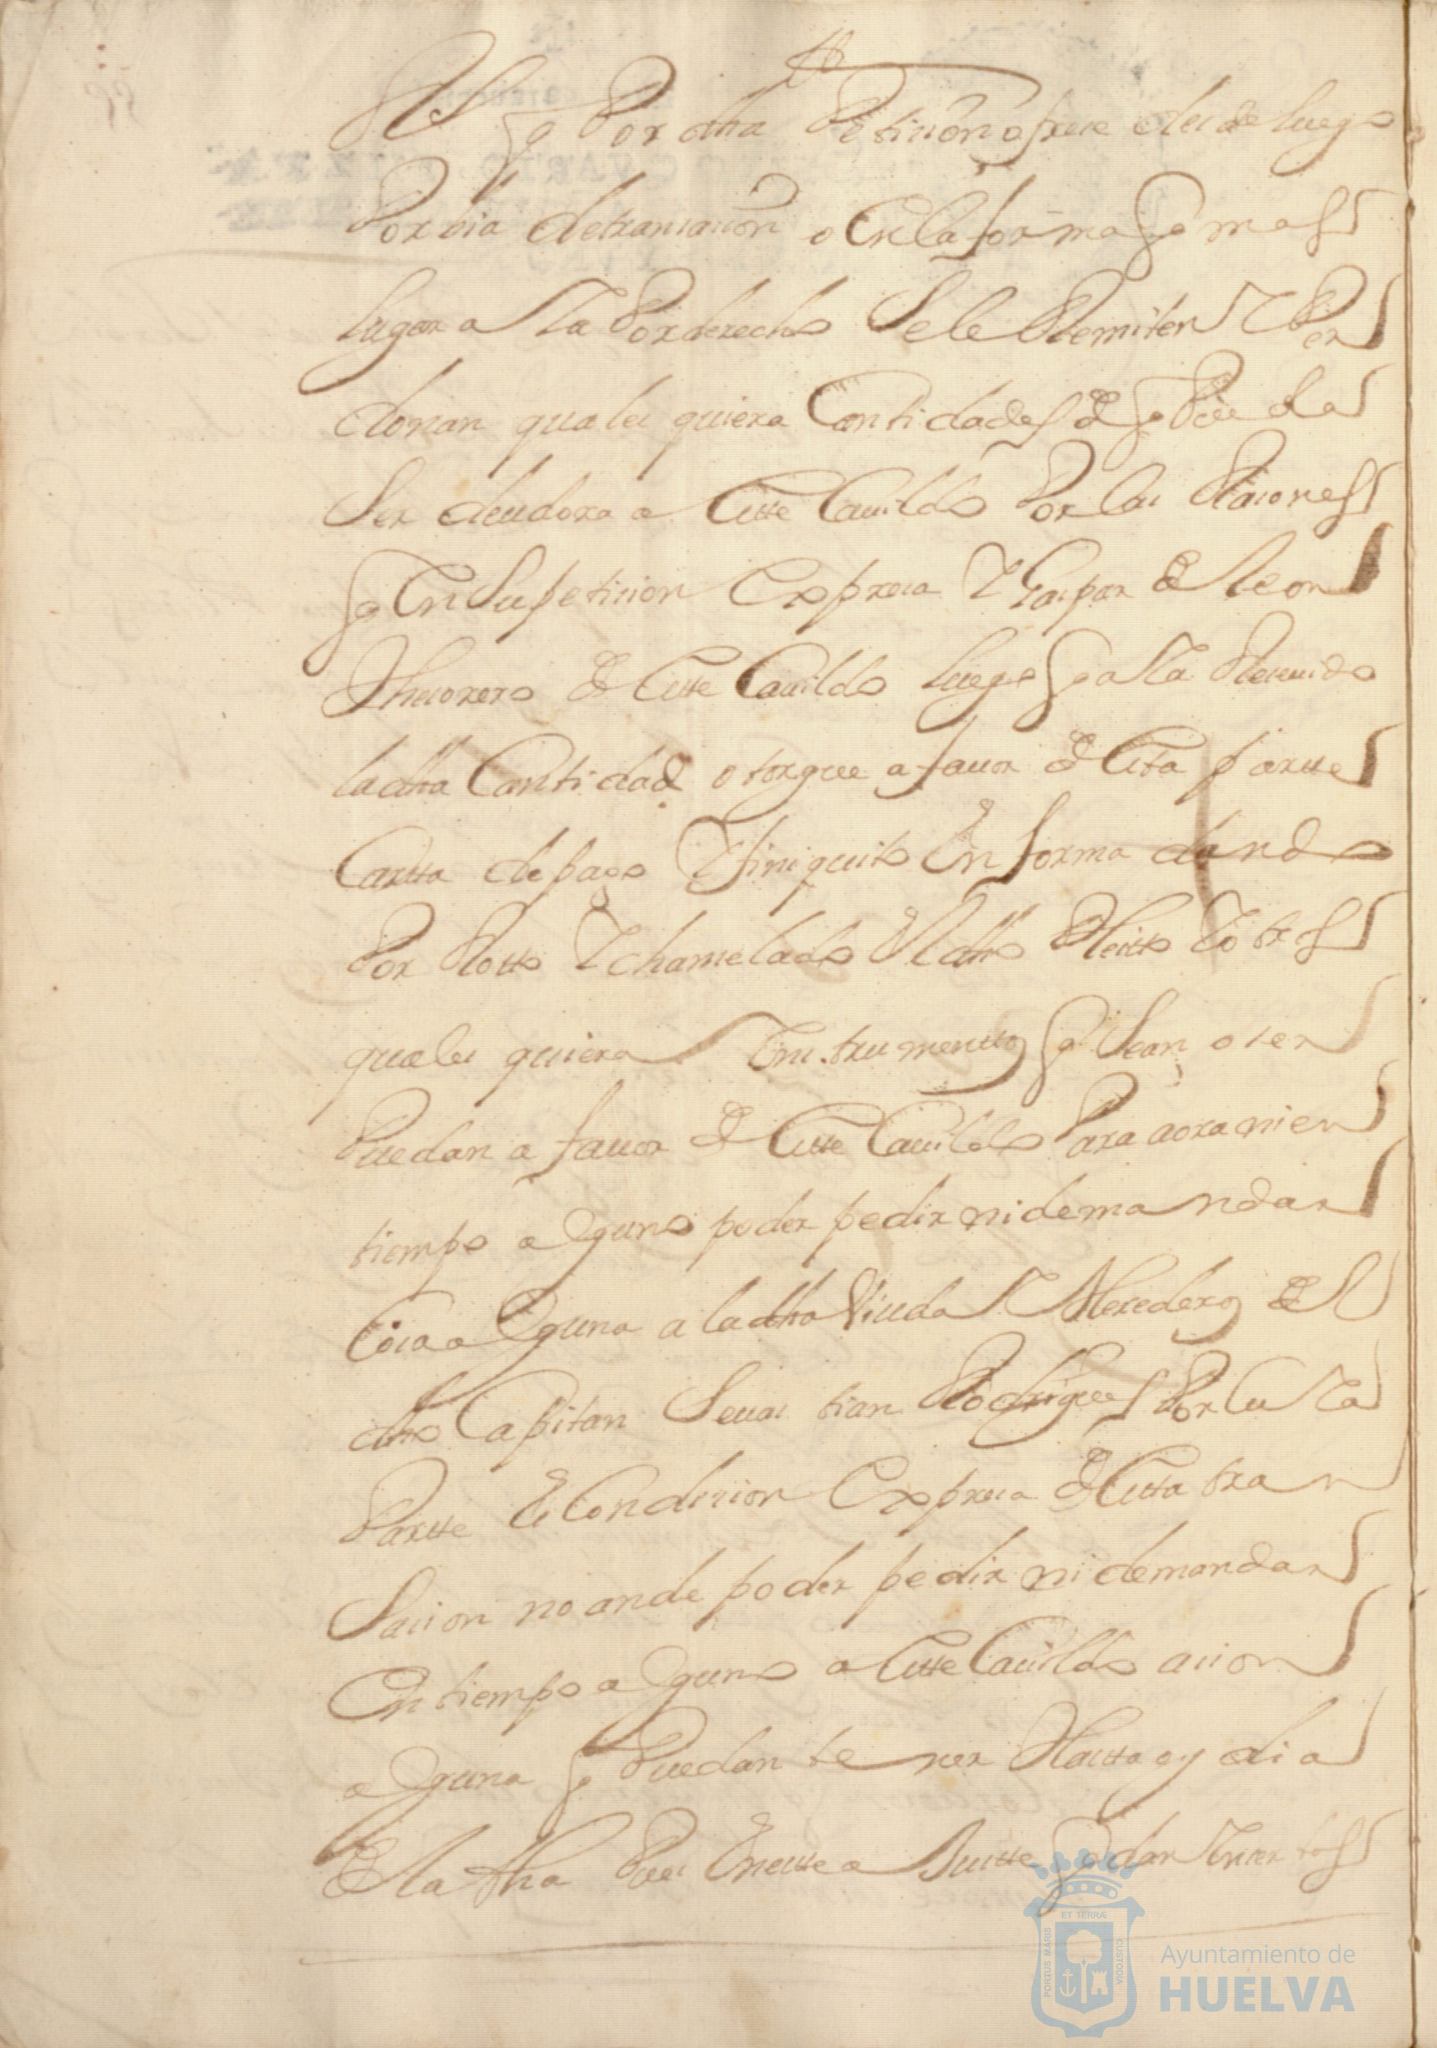 q Por dha Petision ofrece desde luego
Por bia de transacion o en la forma q mas
lugar alla Por derecho Se le Remiten Y Per
donan quales quiera Cantidades de q Pueda
Ser deudora a Este Cauildo Por las Raiones
q En Su peticion Expresa Y Gaspar de leon
Thesorero de Este Cauildo luego q alla Receuido
la dha Cantidad otorgue a fauor de Esta partte
Cartta de pago Y finiquito En forma dando
Por Rotto Y chanselado El dho Pleitto Y otros
quales quiera Ynstrumenttos q Sean o ser
Puedan a fauor de Este Cauildo Para aora ni en
tiempo alguno poder pedir ni demandar
Cosa alguna a la dha Viuda Y Herederos del
dho Capitan Seuastian Rodrigues Por cuia
Partte Es Condision Expresa de Esta tran
Sacion no an de poder pedir ni demandar
En tiempo alguno a Este Cauildo acion
alguna q Puedan tener Hasta oy dia
de la fha Pues En estte a Juste q dan Ynciertos
PORTUS MARIS ET TERRÆ CUSTODIA
Ayuntamiento de
HUELVA